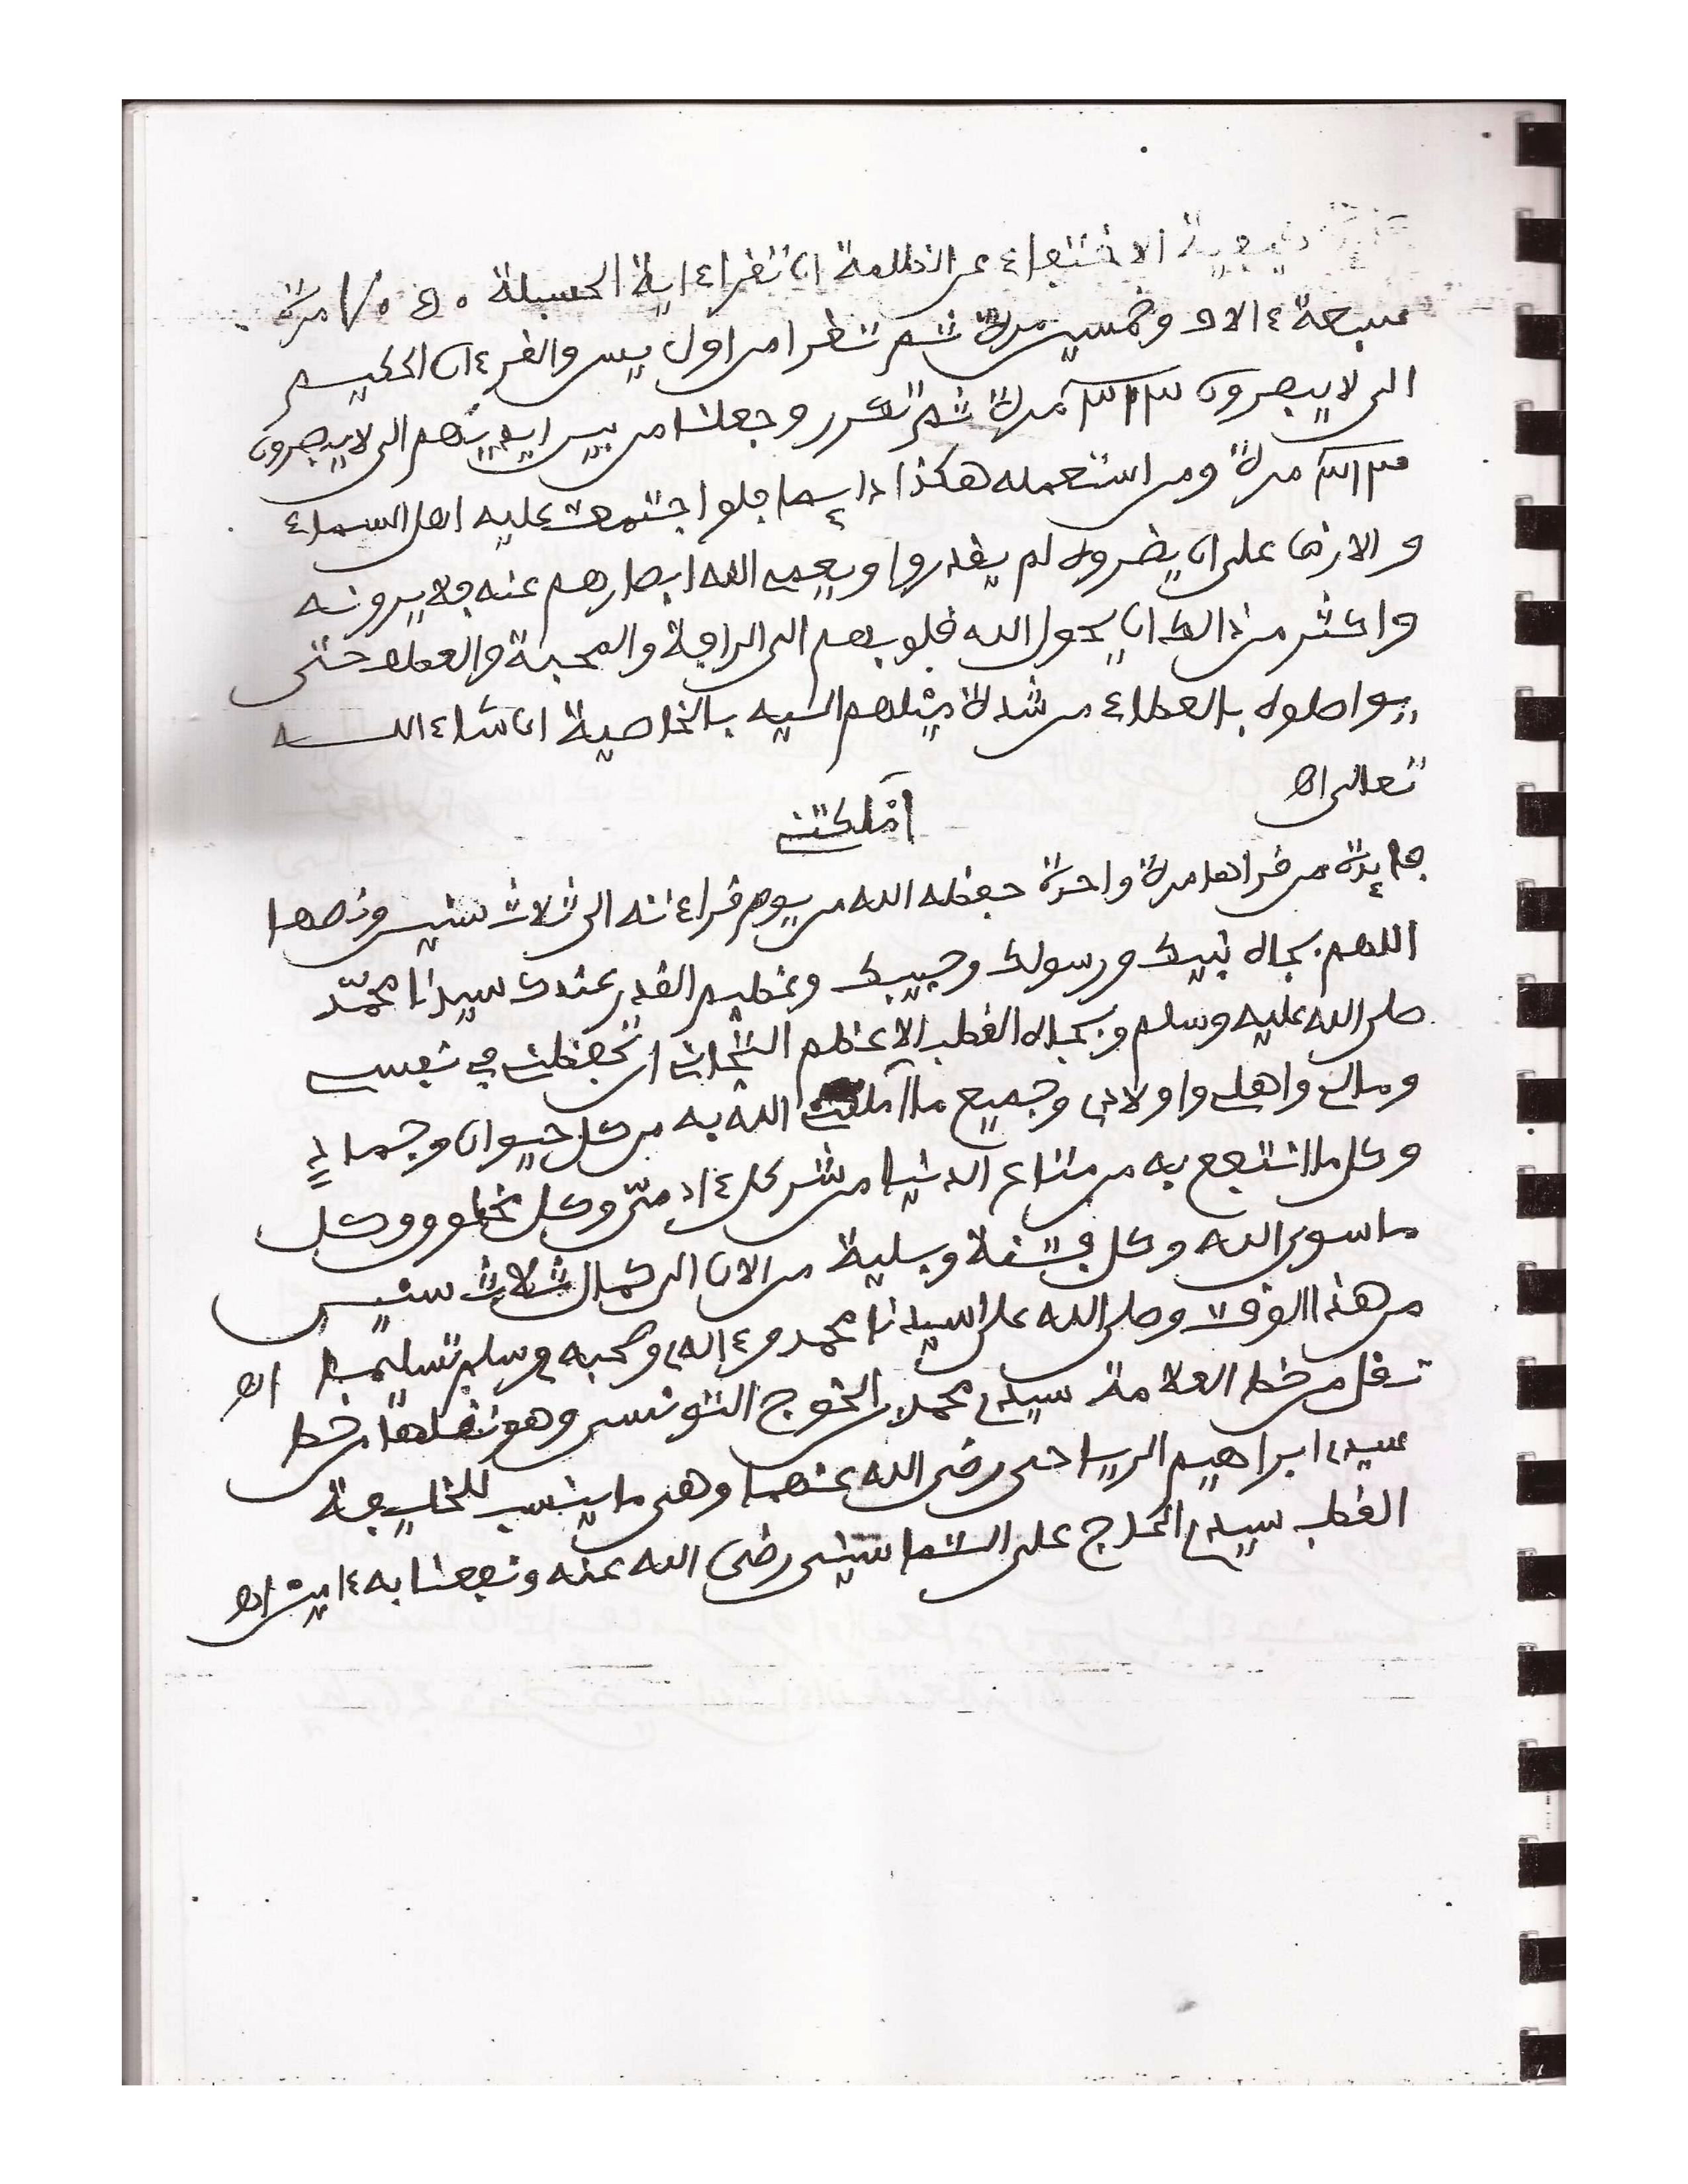 كيفية الاختفاء عن الظلمة ان تقراء اية الحسبلة ٧٠٥٠ مرة
سبعة ءالاف وخمسين مرة ثم تقرا من اول يس والقرءان الحكيم
الى لا يبصرون ٣١٣ مرة ثم تكرر وجعلنا من بين ايديهم الى لا يبصرون
٣١٣ مرة ومن استعمله هكذا دايما فلو اجتمعت عليه اهل السماء
و الارض على ان يضروه لم يقدروا ويعمى الله ابصارهم عنه فلا يرونه
واكثر من ذالك ان يحول الله قلوبهم الى الرافة والمحبة والعطف حتى
يواصلوه بالعطاء من شدة ميلهم اليه بالخاصية ان شاء الله
تعالى اه
فايدة من قراها مرة واحدة حفظه الله من يوم قراءته الى ثلاث سنين ونصها
اللهم بجاه نبيك ورسولك وحبيبك وعظيم القدر عندك سيدنا محمّد
صلى الله عليه وسلم وبجاه القطب الاعظم التجانى ان تحفظنى في نفسى
ومالى واهلى واولادى وجميع ما املكنى الله به من كل حيوان وجماد
وكل ما انتفع به من متاع الدنيا من شر كل ءادمىّ وكل مخلوق وكل
ما سوى الله وكل فتنة وبلية من الان الى كمال ثلاث سنين
من هذا الوقت وصلى الله على سيدنا محمد وءاله وصحبه وسلم تسليما اه
نقل من خط العلامة سيدى محمد بن الخوج التونسى وهو نقلها من خط
سيدى ابراهيم الرياحى رضى الله عنهما وهى ما ينسب للخليفة
القطب سيدى الحاج على التماسينى رضى الله عنه ونفعنا به ءامين اه
املكنى